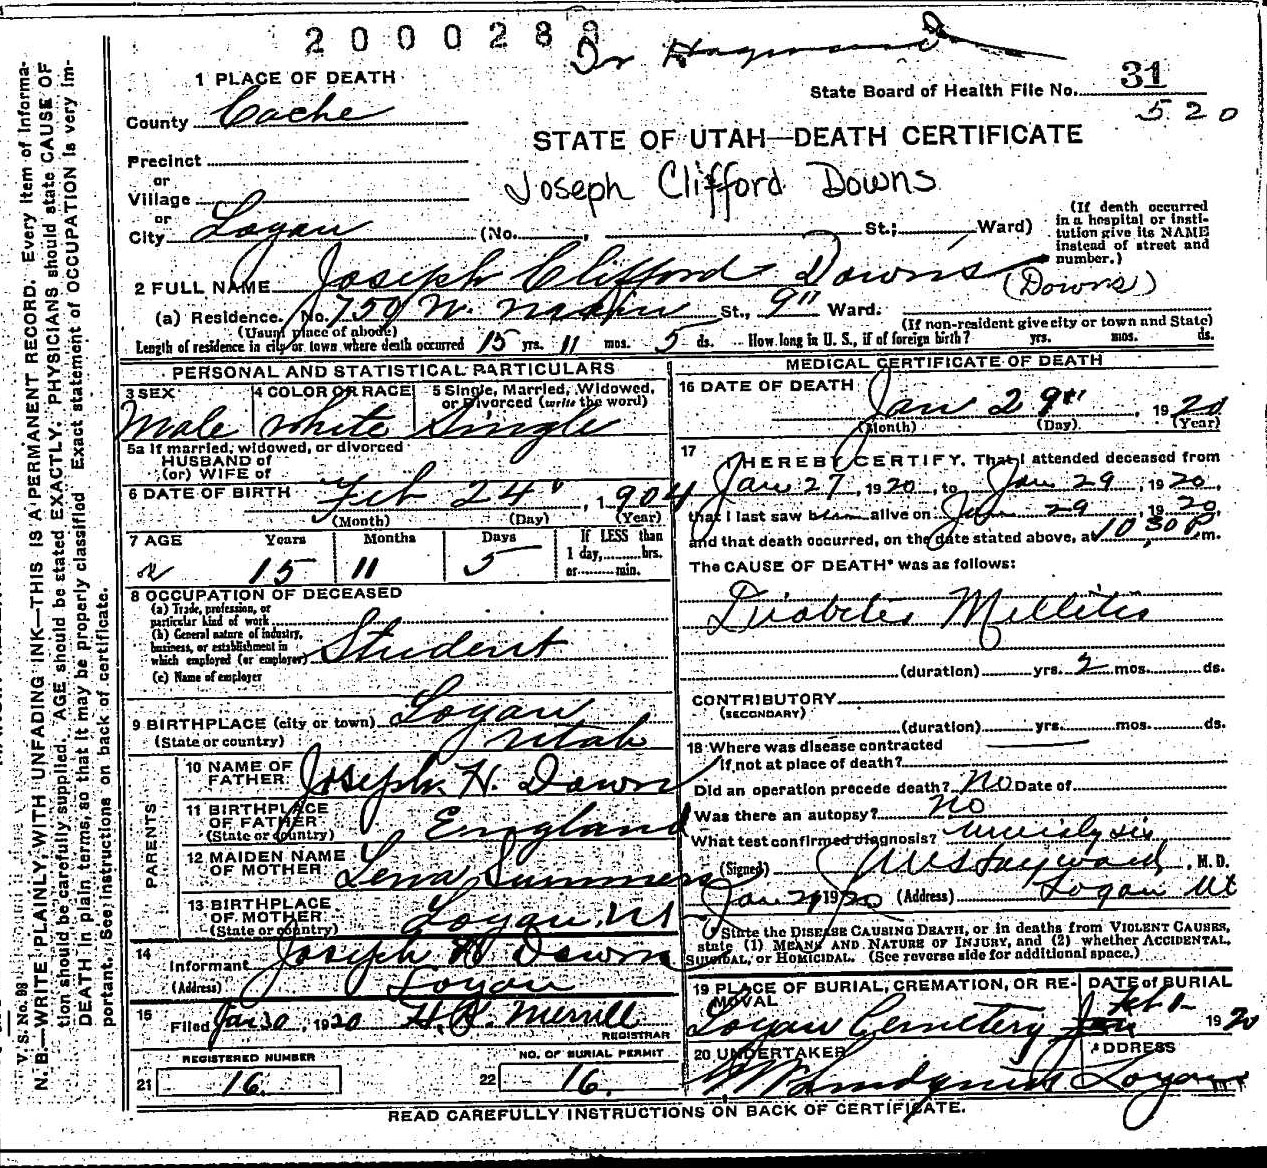 2000288
Dr Hayward
1 PLACE OF DEATH
State Board of Health File No. 31
520
County Cache
STATE OF UTAH—DEATH CERTIFICATE
Precinct
or
Joseph Clifford Downs
Village
or
City Logan (No. , St.; Ward)
(If death occurred in a hospital or institution give its NAME instead of street and number.)
2 FULL NAME Joseph Clifford Downs
(Downs)
(a) Residence. No. 750 N. Main St., 9" Ward.
(Usual place of abode) (If non-resident give city or town and State)
Length of residence in city or town where death occurred 15 yrs. 11 mos. 5 ds. How long in U. S., if of foreign birth? yrs. mos. ds.
PERSONAL AND STATISTICAL PARTICULARS
3 SEX 4 COLOR OR RACE 5 Single, Married, Widowed, or Divorced (write the word)
Male White Single
5a If married, widowed, or divorced
HUSBAND of
(or) WIFE of
6 DATE OF BIRTH Feb 24, 1904
(Month) (Day) (Year)
7 AGE Years Months Days If LESS than
1 day, hrs.
or min.
15 11 5
8 OCCUPATION OF DECEASED
(a) Trade, profession, or
particular kind of work
(b) General nature of industry,
business, or establishment in
which employed (or employer) Student
(c) Name of employer
9 BIRTHPLACE (city or town) Logan
(State or country) Utah
PARENTS
10 NAME OF
FATHER Joseph H. Downs
11 BIRTHPLACE
OF FATHER England
(State or country)
12 MAIDEN NAME
OF MOTHER Lena Summers
13 BIRTHPLACE
OF MOTHER Logan, Ut
(State or country)
14 Informant Joseph H Downs
(Address) Logan
15 Filed Jan 30, 1920 H. R. Merrill
REGISTRAR
REGISTERED NUMBER NO. OF BURIAL PERMIT
21 16. 22 16.
MEDICAL CERTIFICATE OF DEATH
16 DATE OF DEATH Jan 29th, 1920
(Month) (Day) (Year)
17 I HEREBY CERTIFY, That I attended deceased from
Jan 27, 1920, to Jan 29, 1920,
that I last saw him alive on Jan 29, 1920,
and that death occurred, on the date stated above, at 10,30 P.m.
The CAUSE OF DEATH* was as follows:
Diabetes Mellitis
(duration) yrs. 2 mos. ds.
CONTRIBUTORY
(SECONDARY)
(duration) yrs. mos. ds.
18 Where was disease contracted
if not at place of death?
Did an operation precede death? No Date of
Was there an autopsy? No
What test confirmed diagnosis?
(Signed) Hayward, M. D.
Jan 29 1920 (Address) Logan Ut
*State the DISEASE CAUSING DEATH, or in deaths from VIOLENT CAUSES,
state (1) MEANS AND NATURE OF INJURY, and (2) whether ACCIDENTAL,
SUICIDAL, or HOMICIDAL. (See reverse side for additional space.)
19 PLACE OF BURIAL, CREMATION, OR REMOVAL DATE of BURIAL
Logan Cemetery Feb 1 1920
20 UNDERTAKER ADDRESS
Lindquist Logan
READ CAREFULLY INSTRUCTIONS ON BACK OF CERTIFICATE.
V. S. No. 98
N. B.—WRITE PLAINLY, WITH UNFADING INK—THIS IS A PERMANENT RECORD. Every item of informa-
tion should be carefully supplied. AGE should be stated EXACTLY. PHYSICIANS should state CAUSE OF
DEATH in plain terms, so that it may be properly classified. Exact statement of OCCUPATION is very im-
portant. See instructions on back of certificate.